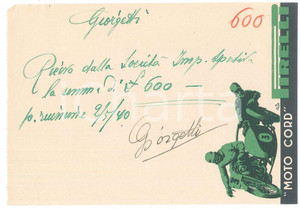 Giorgetti
600
Ricevo dalla Società Imp.
la somma di £ 600 —
p. riunione 2/5/40
Giorgetti
PIRELLI
"MOTO CORD"